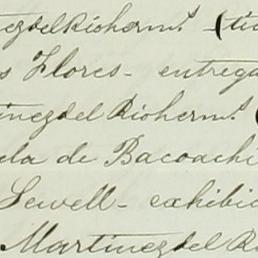 ezdelRioherm.s (tie
s Flores - entrega
inezdel Rioherm.s (
ela de Bacoachi
Sewell - exhibic
Martinezdel R